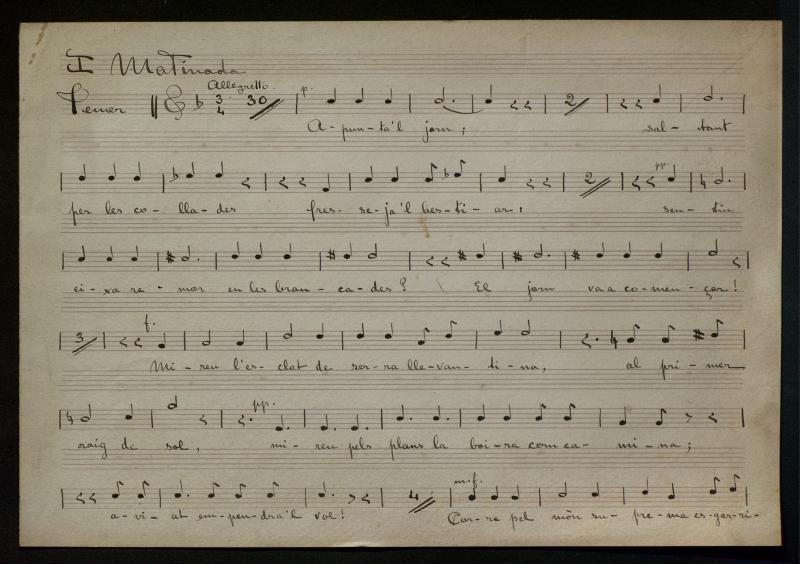 I Matinada
Allegretto.
Tenor 3/4 30 p. 2
A-pun-ta'l jorn; sal-tant
2 pp.
per les co-lla-des fres-se-ja'l bes-ti-ar: sen-tiu
ei-xa re-mor en les bran-ca-des? El jorn va a co-men-çar!
3 f.
Mi-reu l'es-clat de ser-ra lle-van-ti-na, al pri-mer
pp.
raig de sol, mi-reu pels plans la boi-ra com ca-mi-na;
4 m.f.
a-vi-at em-pen-drà'l vol! Cor-re pel món su-pre-ma es-gar-ri-